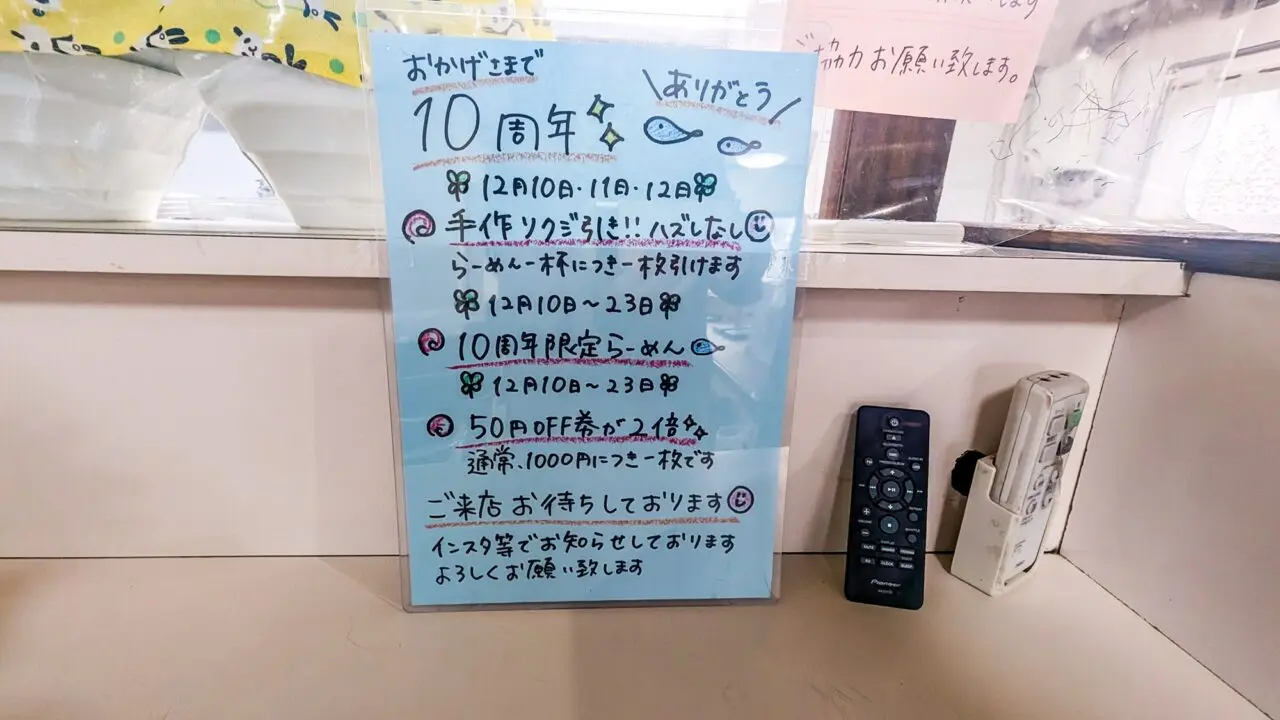 おかげさまで
\ありがとう/
10周年
12月10日・11日・12日
手作りクジ引き!! ハズレなし
らーめん一杯につき一枚引けます
12月10日～23日
10周年限定らーめん
12月10日～23日
50円OFF券が2倍
通常、1000円につき一枚です
ご来店お待ちしております
インスタ等でお知らせしております
よろしくお願い致します
ご協力お願い致します。
Pioneer